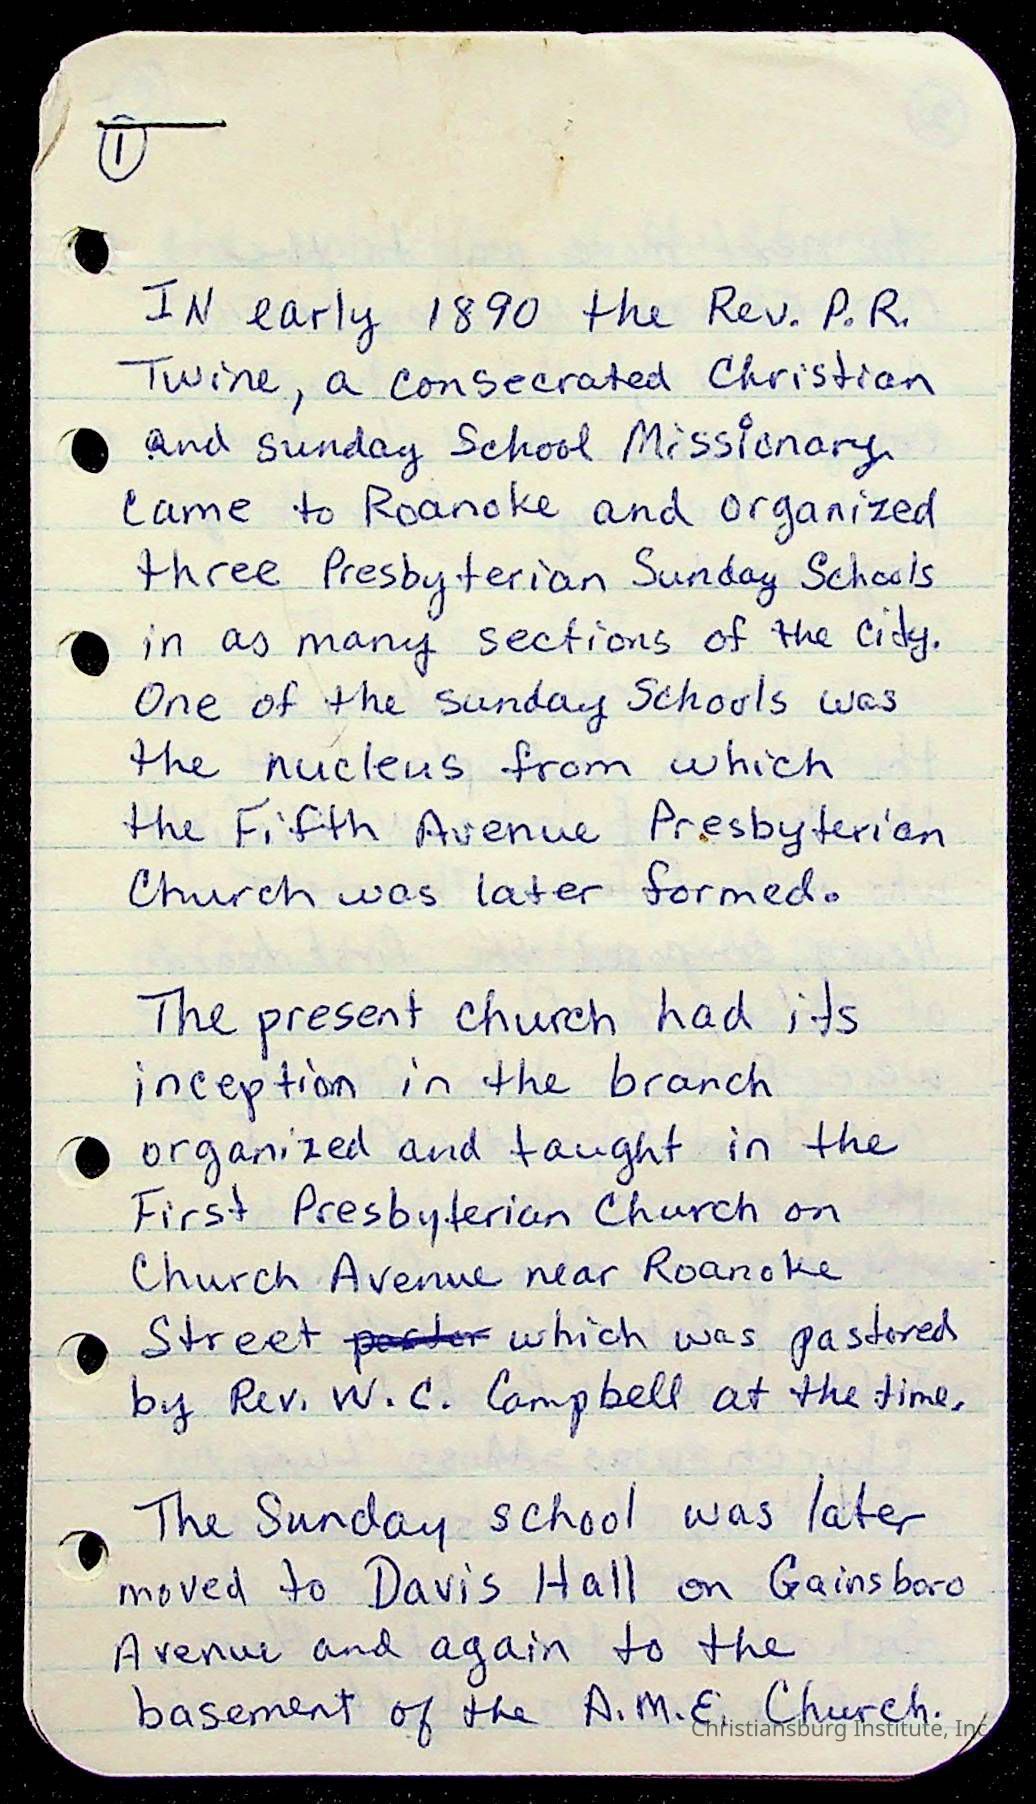 1
IN early 1890 the Rev. P.R.
Twine, a consecrated Christian
and sunday School Missionary
came to Roanoke and organized
three Presbyterian Sunday Schools
in as many sections of the city.
One of the sunday Schools was
the nucleus from which
the Fifth Avenue Presbyterian
Church was later formed.
The present church had its
inception in the branch
organized and taught in the
First Presbyterian Church on
Church Avenue near Roanoke
Street paster which was pastored
by Rev. W.C. Campbell at the time.
The Sunday school was later
moved to Davis Hall on Gainsboro
Avenue and again to the
basement of the A.M.E. Church.
Christiansburg Institute, Inc